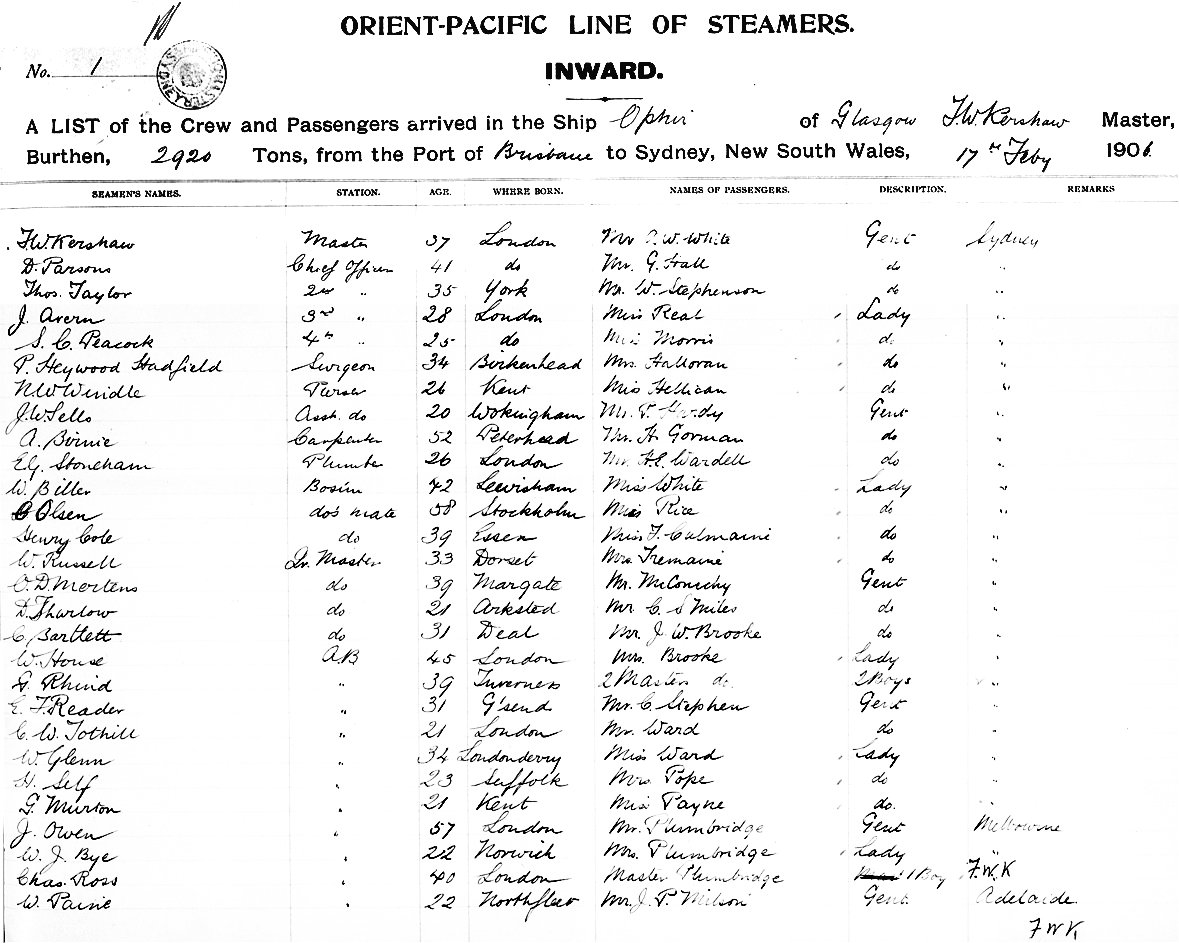 ORIENT-PACIFIC LINE OF STEAMERS.
No. 1
INWARD.
A LIST of the Crew and Passengers arrived in the Ship Ophir of Glasgow F.W. Kershaw Master,
Burthen, 2920 Tons, from the Port of Brisbane to Sydney, New South Wales, 17th Feby 1906.
SEAMEN'S NAMES. STATION. AGE. WHERE BORN. NAMES OF PASSENGERS. DESCRIPTION. REMARKS
F.W. Kershaw Master 37 London Mr A.W. White Gent Sydney
D. Parsons Chief Officer 41 do Mr. G. Hall do "
Thos. Taylor 2nd " 35 York Mr. W. Stephenson do "
J. Avern 3rd " 28 London Miss Real Lady "
S. C. Peacock 4th " 25 do Miss Morris do "
P. Heywood Hadfield Surgeon 34 Birkenhead Mrs. Halloran do "
N.W. Windle Purser 26 Kent Miss Hellican do "
J.W. Sells Asst. do 20 Wokingham Mr. P. Hardy Gent "
A. Birnie Carpenter 52 Peterhead Mr. H. Gorman do "
E.G. Stoneham Plumber 26 London Mr. H.E. Wardell do "
W. Biller Bosun 42 Lewisham Miss White Lady "
Olsen do's mate 58 Stockholm Miss Rice do "
Henry Cole do 39 Essex Miss F. Culmaine do "
W. Russell Qr. Master 33 Dorset Mrs Tremaine do "
O.D. Mertens do 39 Margate Mr. McConichy Gent "
D. Tharlow do 21 Arksted Mr C. S Miles do "
C. Bartlett do 31 Deal Mr. J. W. Brooke do "
W. House AB 45 London Mrs. Brooke Lady "
G. Rhind " 39 Inverness 2 Masters do. 2 Boys "
E. F. Reader " 31 G'send Mr. C. Stephen Gent "
C. W. Tothill " 21 London Mr. Ward do "
W. Glenn " 34 Londonderry Miss Ward Lady "
H. Self " 23 Suffolk Mrs Pope do "
G. Murton " 21 Kent Miss Payne do. "
J. Owen " 57 London Mr. Plumbridge Gent Melbourne
W. J. Bye " 22 Norwich Mrs. Plumbridge Lady "
Chas. Ross " 40 London Master Plumbridge 1 Boy F.W.K
W. Paine " 22 Northfleet Mr. J. P. Milson Gent. Adelaide.
F W K